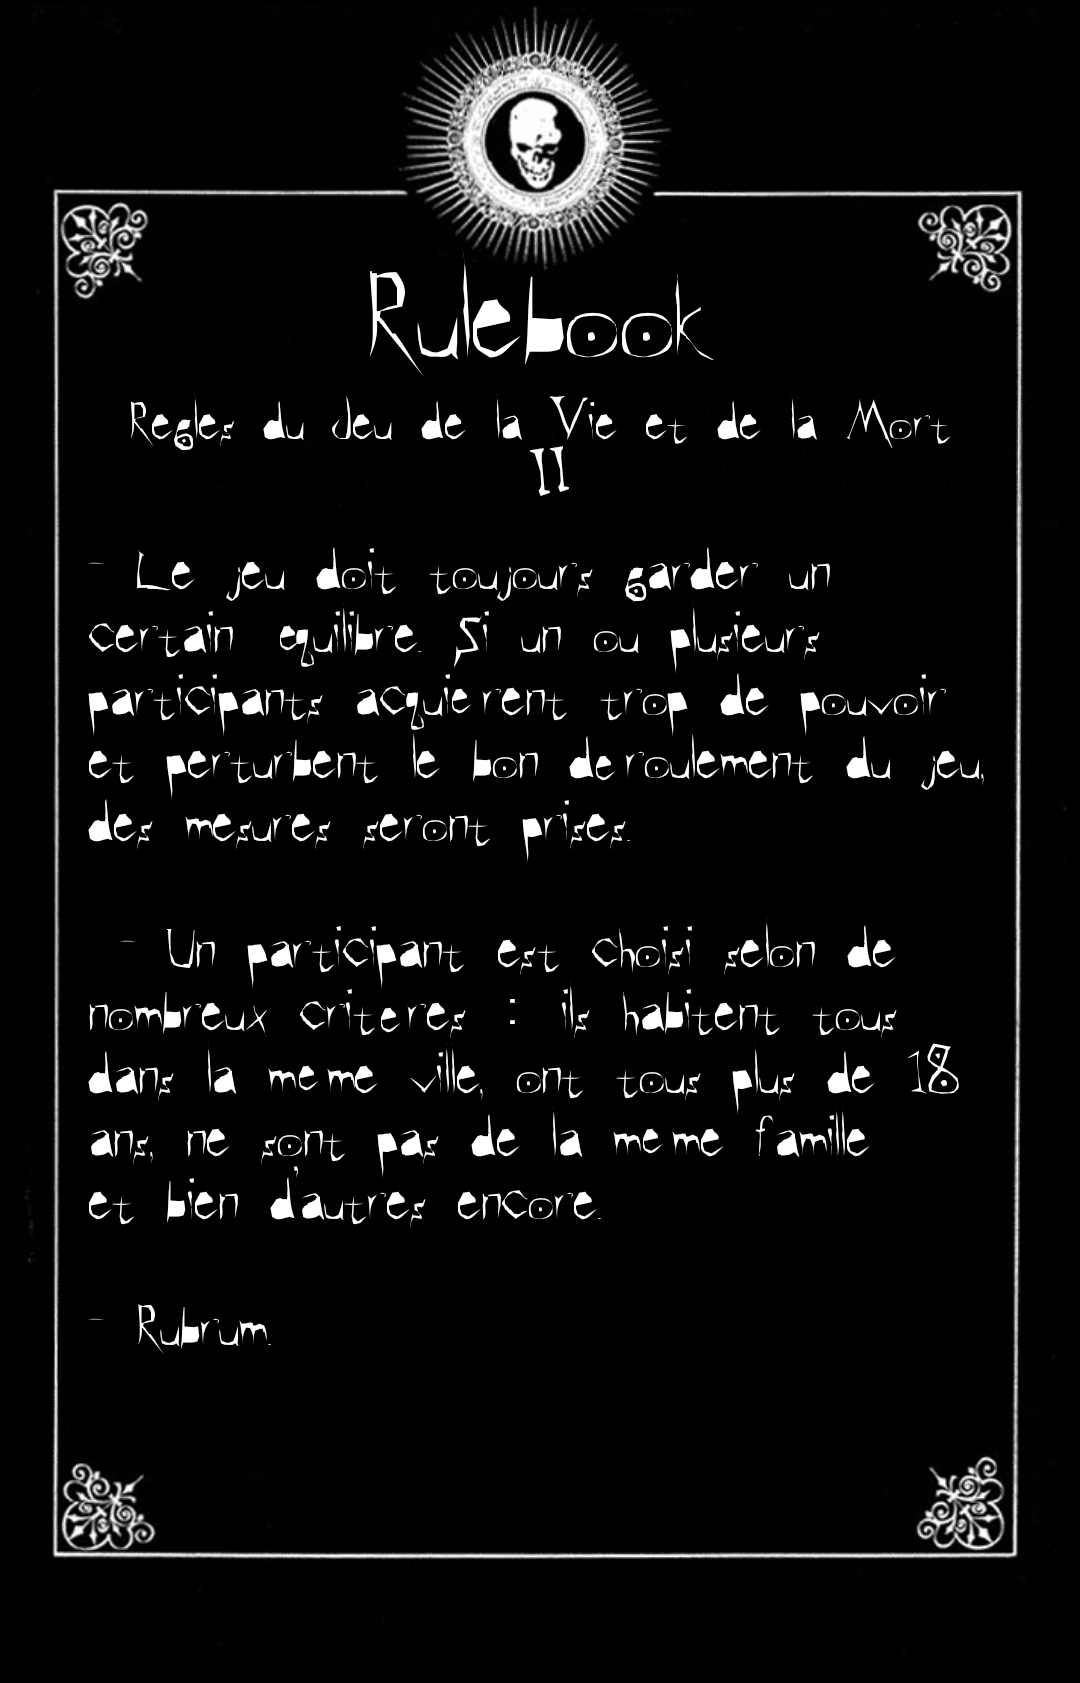 Rulebook
Regles du Jeu de la Vie et de la Mort
II
- Le jeu doit toujours garder un
certain equilibre. Si un ou plusieurs
participants acquie rent trop de pouvoir
et perturbent le bon de roulement du jeu,
des mesures seront prises.
- Un participant est choisi selon de
nombreux crite res : ils habitent tous
dans la me me ville, ont tous plus de 18
ans, ne sont pas de la me me famille
et bien d'autres encore.
- Rubrum.